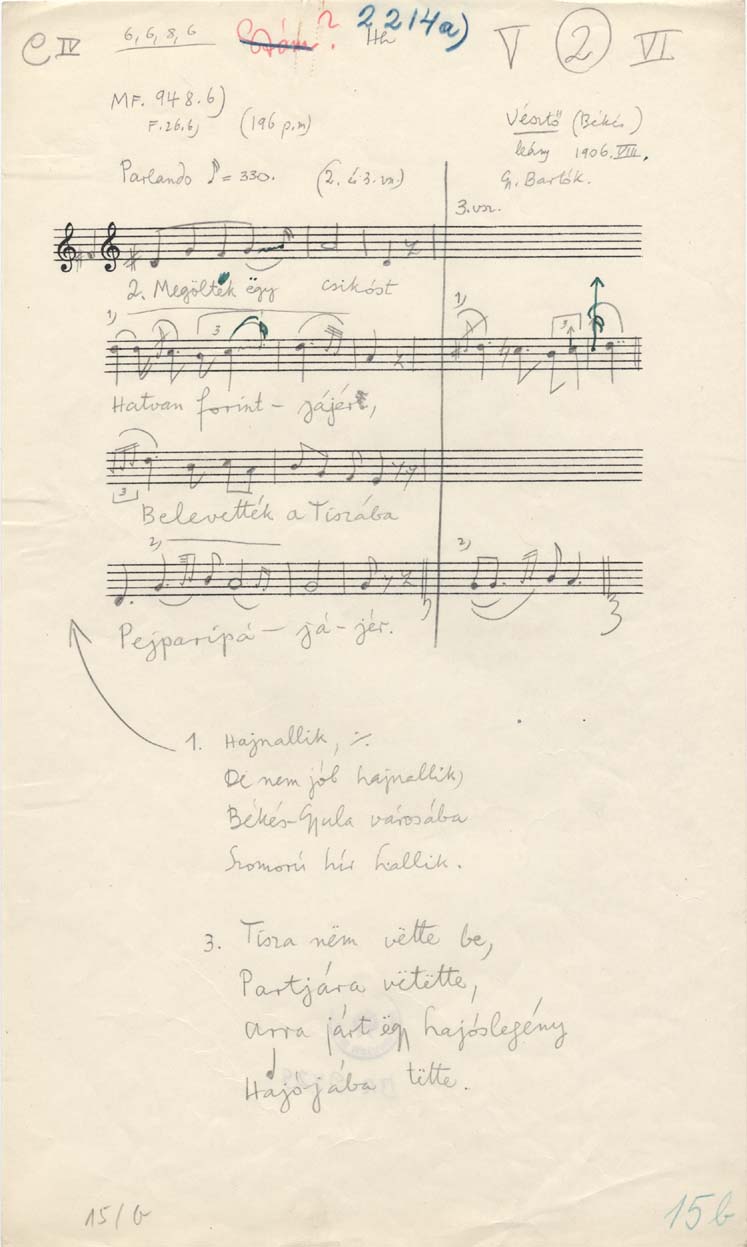 C IV 6, 6, 8, 6 ? 2214a) V 2 VI
MF. 948.b)
F. 26.b) (196 p.m)
Vésztő (Békés)
leány 1906. VIII.
Gy. Bartók.
Parlando ♪ = 330. (2. és 3. vsz)
3. vsz.
2. Megölték ëgy csikóst
1) 3 1) 3
Hatvan forint-jájért,
3
Belevették a Tiszába
2) 2)
Pejparipá-já-jér.
1. Hajnallik, ·/.
De nem jól hajnallik,
Békés-Gyula városába
Szomorú hír hallik.
3. Tisza nëm vëtte be,
Partjára vëtëtte,
Arra járt ëgy hajóslegény
Hajójába tëtte.
15/b 15b